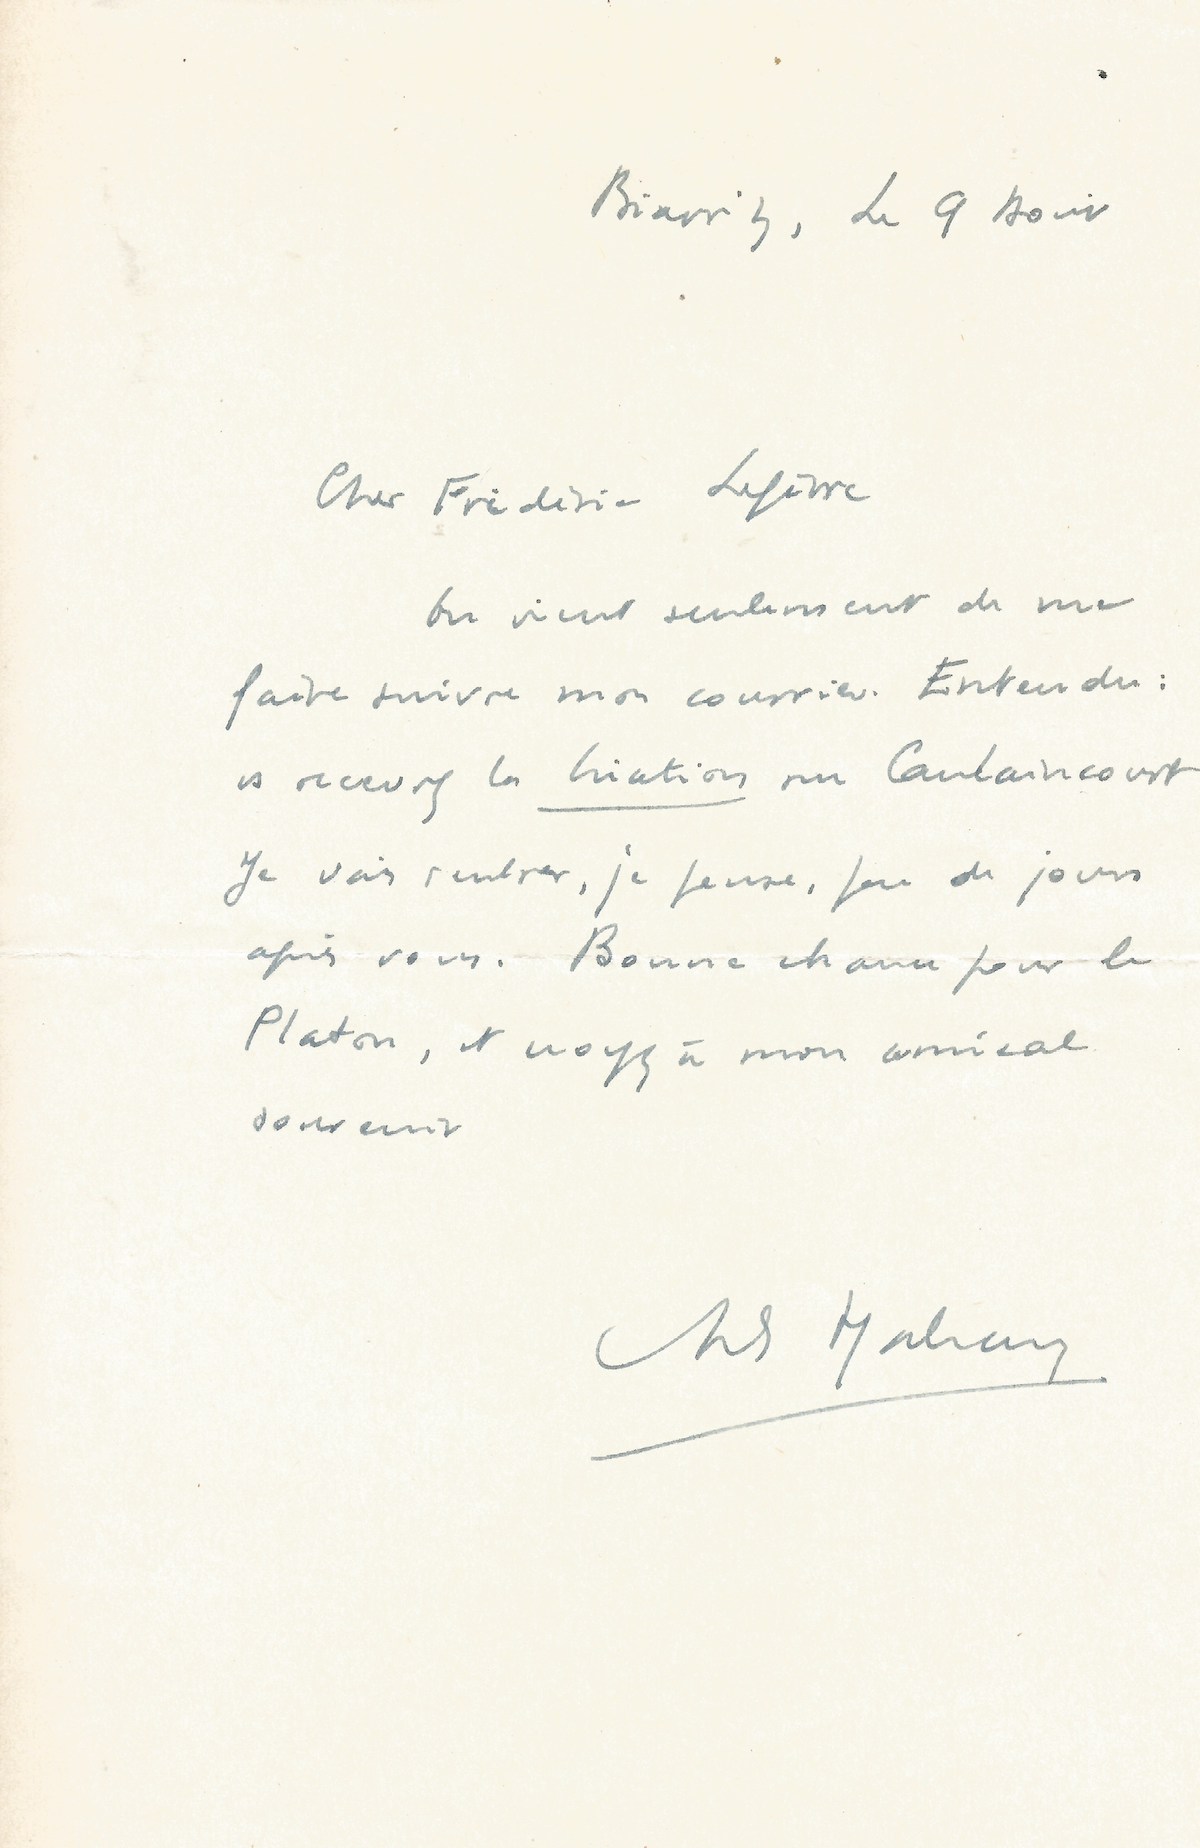 Biarritz, le 9 Août
Cher Frédéric Lefèvre
On vient seulement de me
faire suivre mon courrier. Entendu :
vs recevrez les sur Caulaincourt
Je vais rentrer, je pense, peu de jours
après vous. Bonne chance pour le
Platon, et croyez à mon amical
souvenir